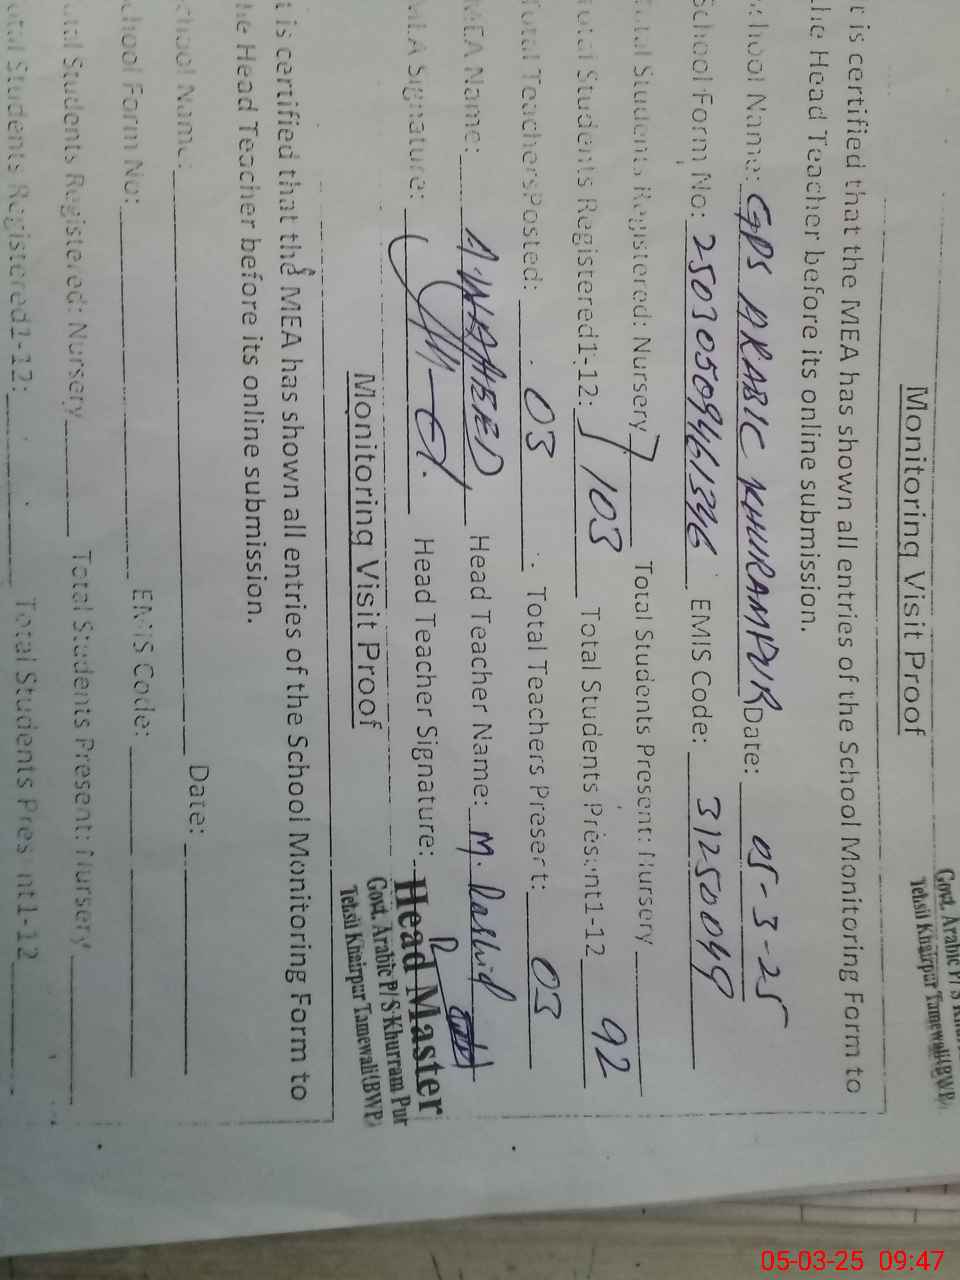 Govt. Arabic P/S Khu
Tehsil Khairpur Tamewali(BWP)
Monitoring Visit Proof
t is certified that the MEA has shown all entries of the School Monitoring Form to
he Head Teacher before its online submission.
chool Name: GPS ARABIC KHURAMPUR Date: 05-3-25
School Form No: 25030509461346 EMIS Code: 31250049
Total Students Registered: Nursery Total Students Present: Nursery
Total Students Registered1-12: 103 Total Students Present1-12 92
Total TeachersPosted: 03 Total Teachers Present: 03
MEA Name: A.WAHEED Head Teacher Name: M. Rashid
MEA Signature: Head Teacher Signature:
Head Master
Govt. Arabic P/S Khurram Pur
Tehsil Khairpur Tamewali(BWP)
Monitoring Visit Proof
t is certified that the MEA has shown all entries of the School Monitoring Form to
he Head Teacher before its online submission.
chool Name: Date:
chool Form No: EMIS Code:
otal Students Registered: Nursery Total Students Present: Nursery
otal Students Registered1-12: Total Students Present1-12
05-03-25 09:47